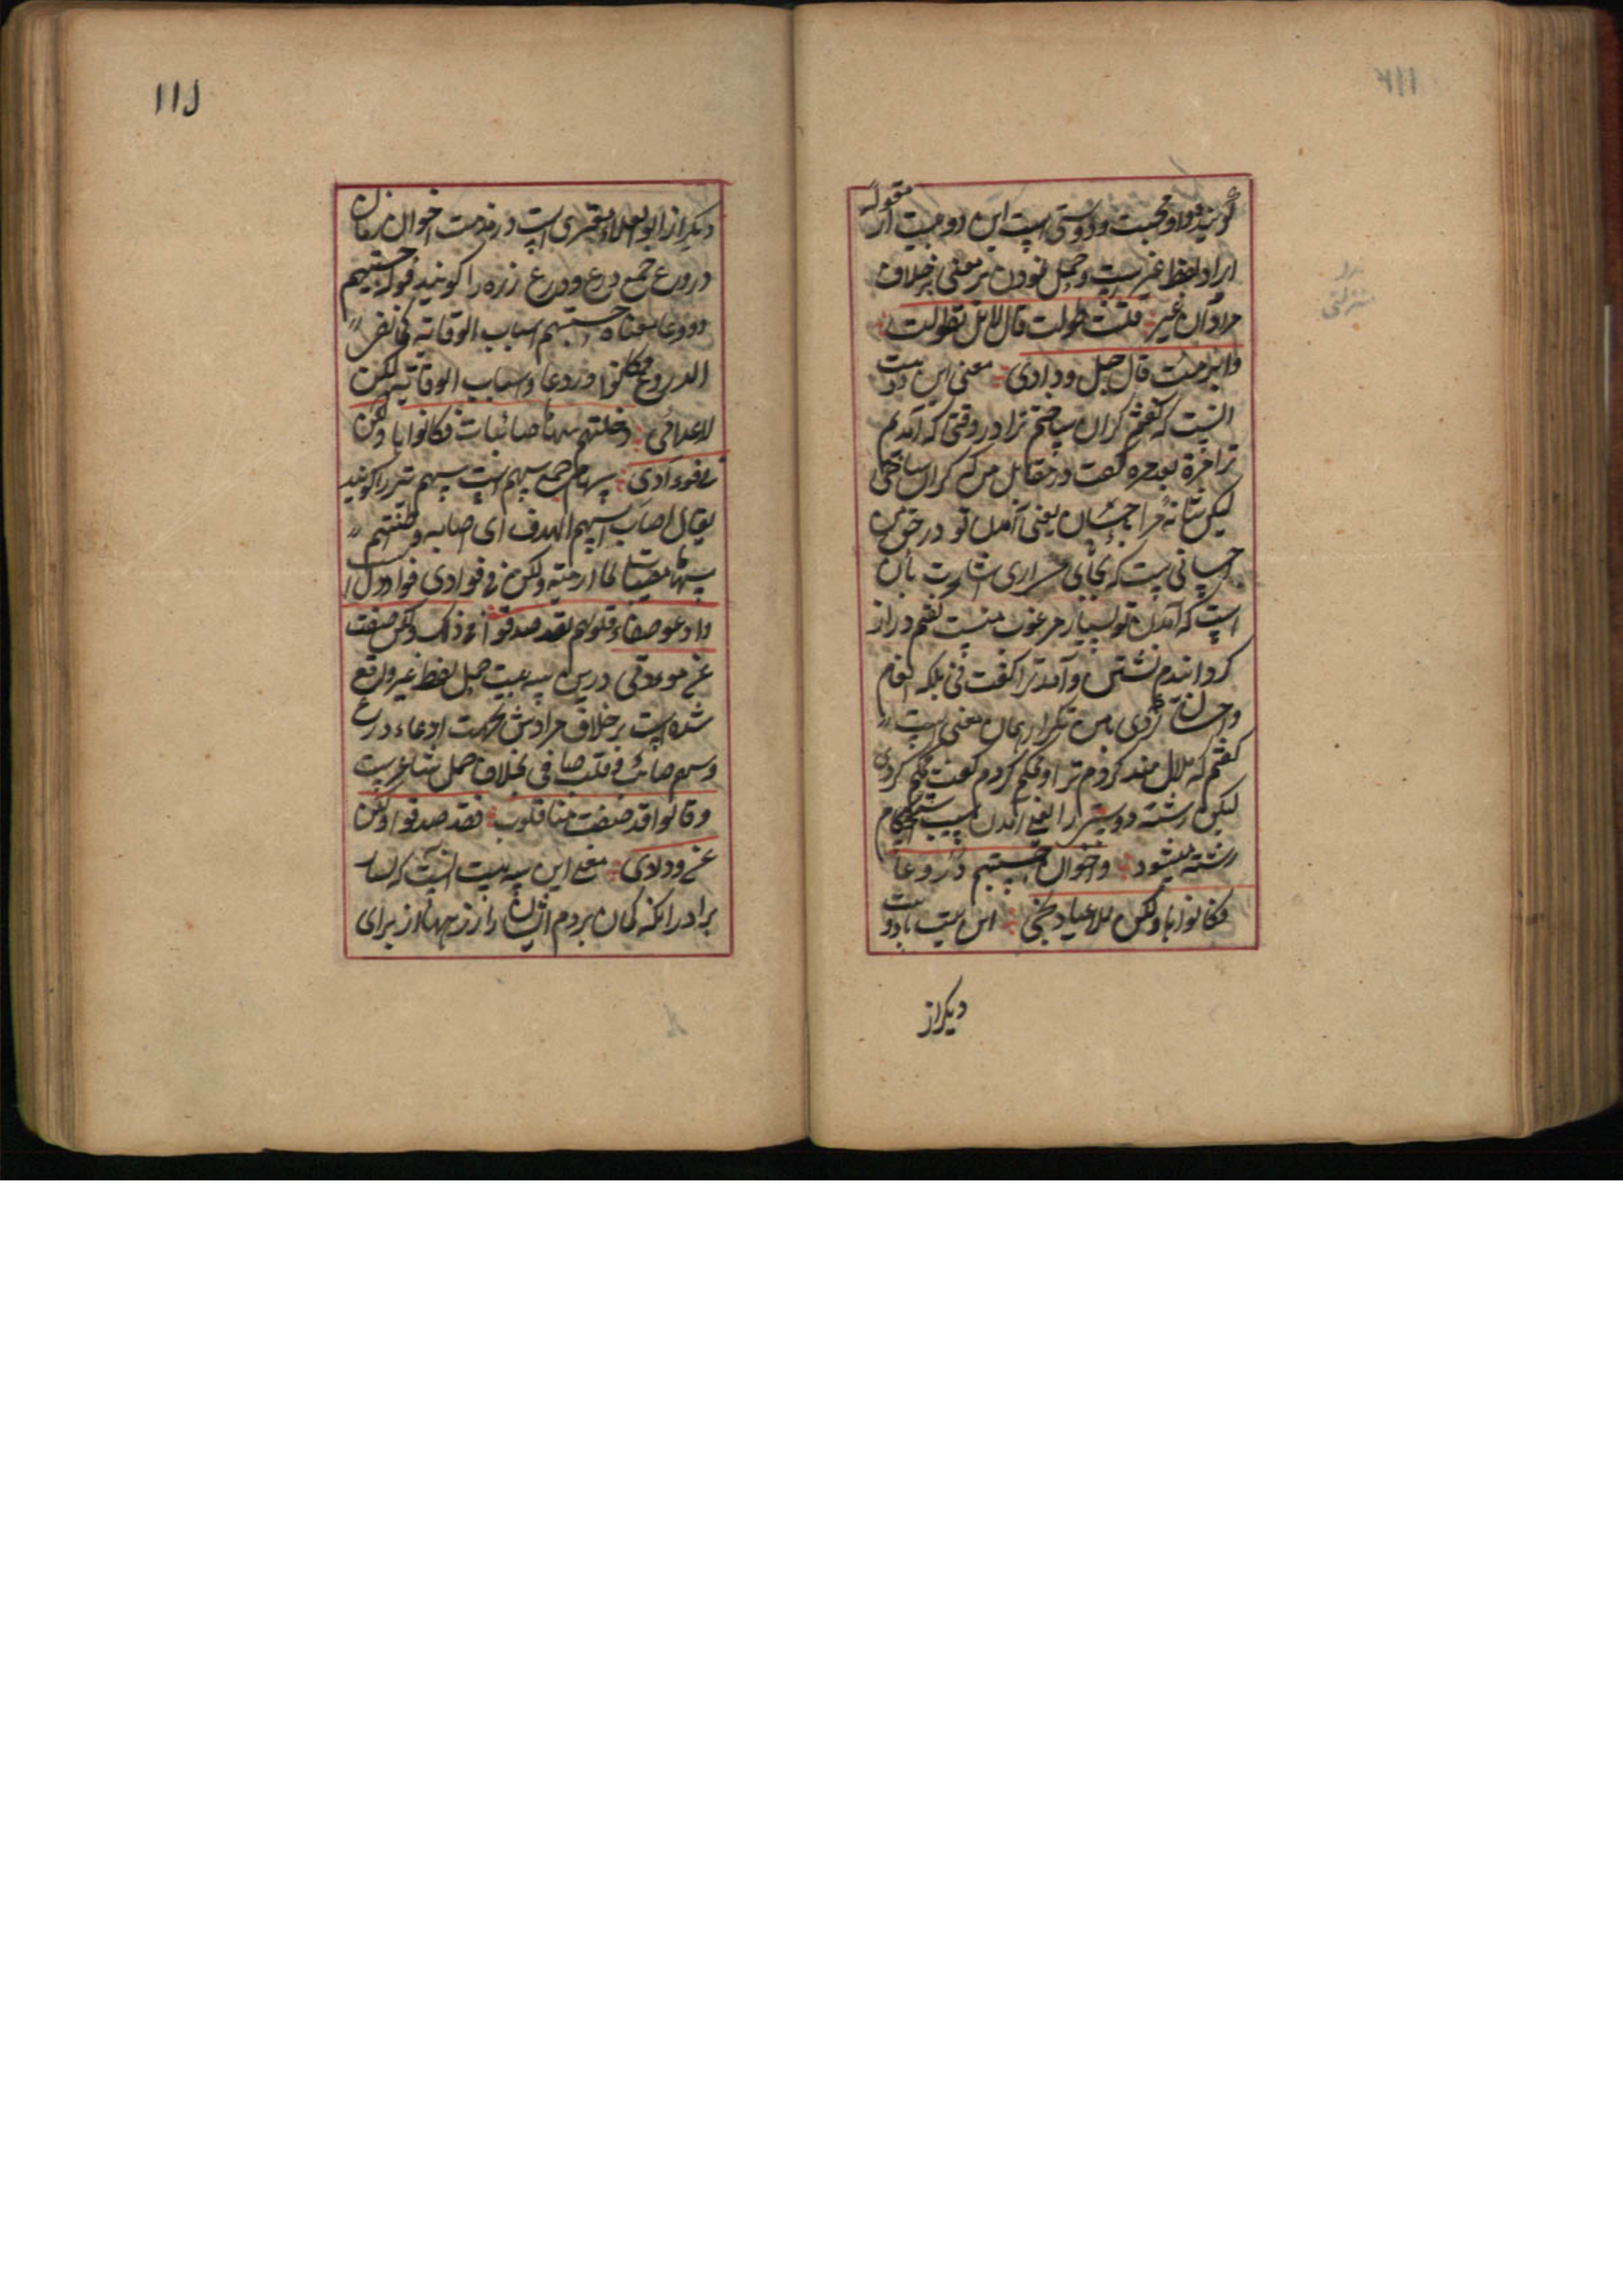 گویند و داد و محبت و دوستی است این دو بیت از مقوله
ایراد لفظ غیر است و حمل نمودن بر معنی بر خلاف
مراد آن غیر قلت طولت قال لا بل تطولت
وابرمت قال حبل ودادی معنی این دو بیت
اینست که گفتم گران ساختم ترا در وقتی که آمدم
ترا مرة بعد مرة گفت در مقابل من که گران ساختی
لیکن شانه مرا باحسان یعنی آمدن تو در حق من
احسانی است که بجای می آری اشارت بآن
است که آمدن تو بسیار مرغوب منست گفتم دراز
گردانیدم نشستن و آمد ترا گفت نی بلکه انعام
و احسان کردی بامن تکرار همان معنی است
گفتم که ملال مند کردم ترا و محکم کردم گفت محکم کردی
لیکن رشته دوستی را یعنی آمدن سبب استحکام
رشته میشود واخوان حسبتهم دروعا
فکانوها ولکن للاعادی این بیت با دو بیت
دیگر از
دیگر از ابو العلاء معری است در مذمت اخوان زمان
دروع جمع درع و درع زره را گویند قوله حسبتهم
دروعا معناه حسبتهم اسباب الوقایة کالف
الدروع فکانوا دروعا واسباب الوقایة لکن
لاعدائی وخلتهم سهاما صائبات فکانوها ولکن
فی فؤادی سهام جمع سهم است سهم تیر را گویند
یقال اصاب السهم الهدف ای اصابه وظننتهم
سهاما مصیبات لما ارمیته ولکن فی فؤادی فواد دل
وادعو صفاء قلوبهم لقد صدقوا فی ذلک ولکن صفت
عن مودتی درین سه بیت حمل لفظ غیر واقع
شده است بر خلاف مرادش بجهت ادعاء درع
وسهم صائب و قلب صافی بخلاف حمل شاعر است
وقالوا قد صفت منا قلوب فقد صدقوا ولکن
عن ودادی معنی این سه بیت اینست که بسا
برادرانکه گمان بردم ایشان را زرهها از برای